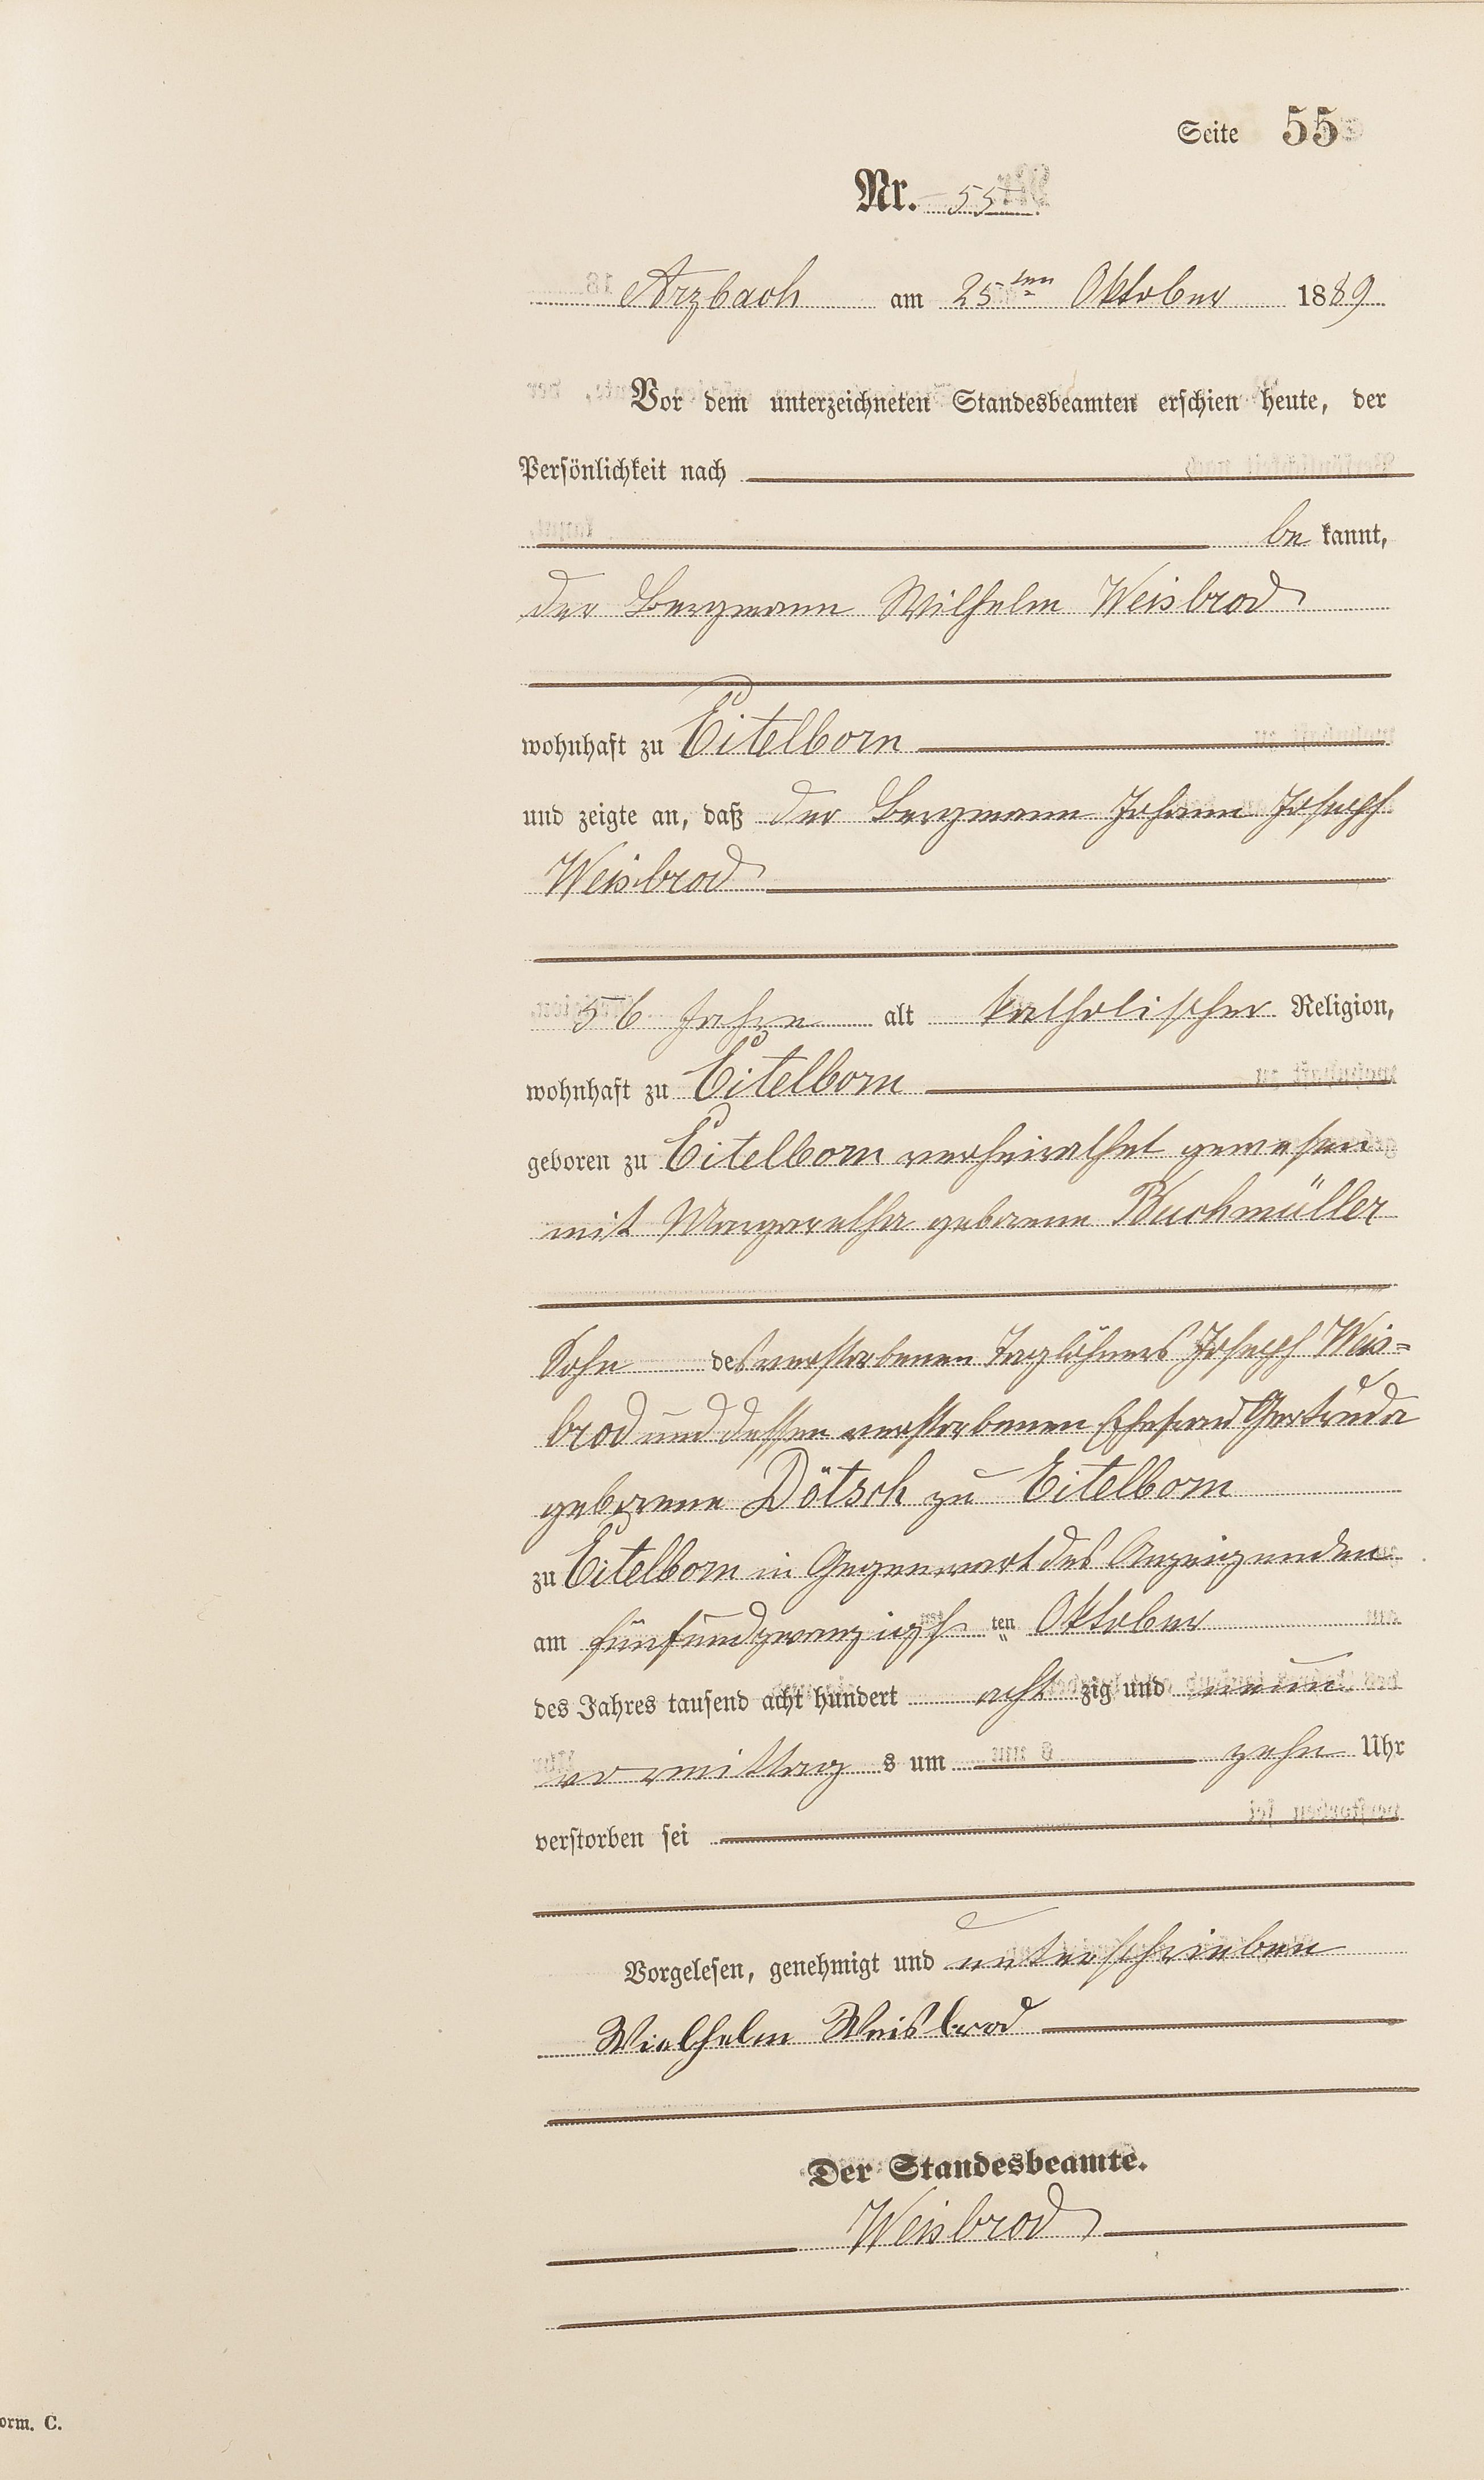 Seite 55
Nr. 55
Arzbach am 25ten Oktober 1889
Vor dem unterzeichneten Standesbeamten erschien heute, der
Persönlichkeit nach
be kannt,
der Bergmann Wilhelm Weisbrod
wohnhaft zu Eitelborn
und zeigte an, daß der Bergmann Johann Joseph
Weisbrod
56 Jahre alt katholischer Religion,
wohnhaft zu Eitelborn
geboren zu Eitelborn verheirathet gewesen
mit Margaretha geborene Buchmüller
Sohn des verstorbenen Taglöhners Joseph Weis=
brod und dessen verstorbenen Ehefrau Gertruda
geborene Dötsch zu Eitelborn
zu Eitelborn in Gegenwart des Anzeigenden
am fünfundzwanzigs ten Oktober
des Jahres tausend acht hundert acht zig und neun
vormittag s um zehn Uhr
verstorben sei
Vorgelesen, genehmigt und unterschrieben
Wielhelm Weisbrod
Der Standesbeamte.
Weisbrod
orm. C.